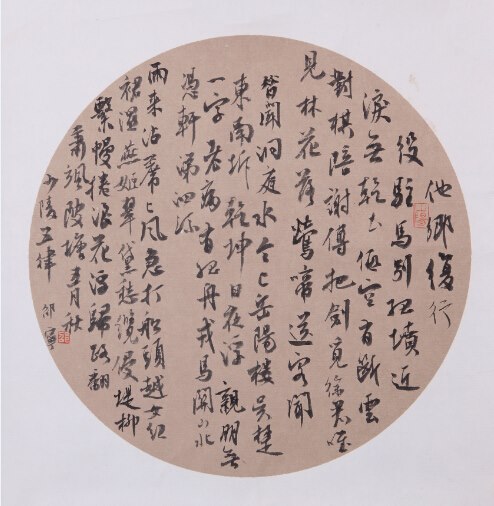 他鄉復行
役駐馬別孤墳近
淚無乾土低空有斷雲
對棋陪謝傅把劍覓徐君唯
見林花落鶯啼送客聞
昔聞洞庭水今上岳陽樓吳楚
東南坼乾坤日夜浮親朋無
一字老病有孤舟戎馬關山北
憑軒涕泗流
雨来沾席上風急打船頭越女紅
裙濕燕姬翠黛愁纜侵堤柳
繫幔捲浪花浮歸路翻
蕭颯陂塘五月秋
少陵五律